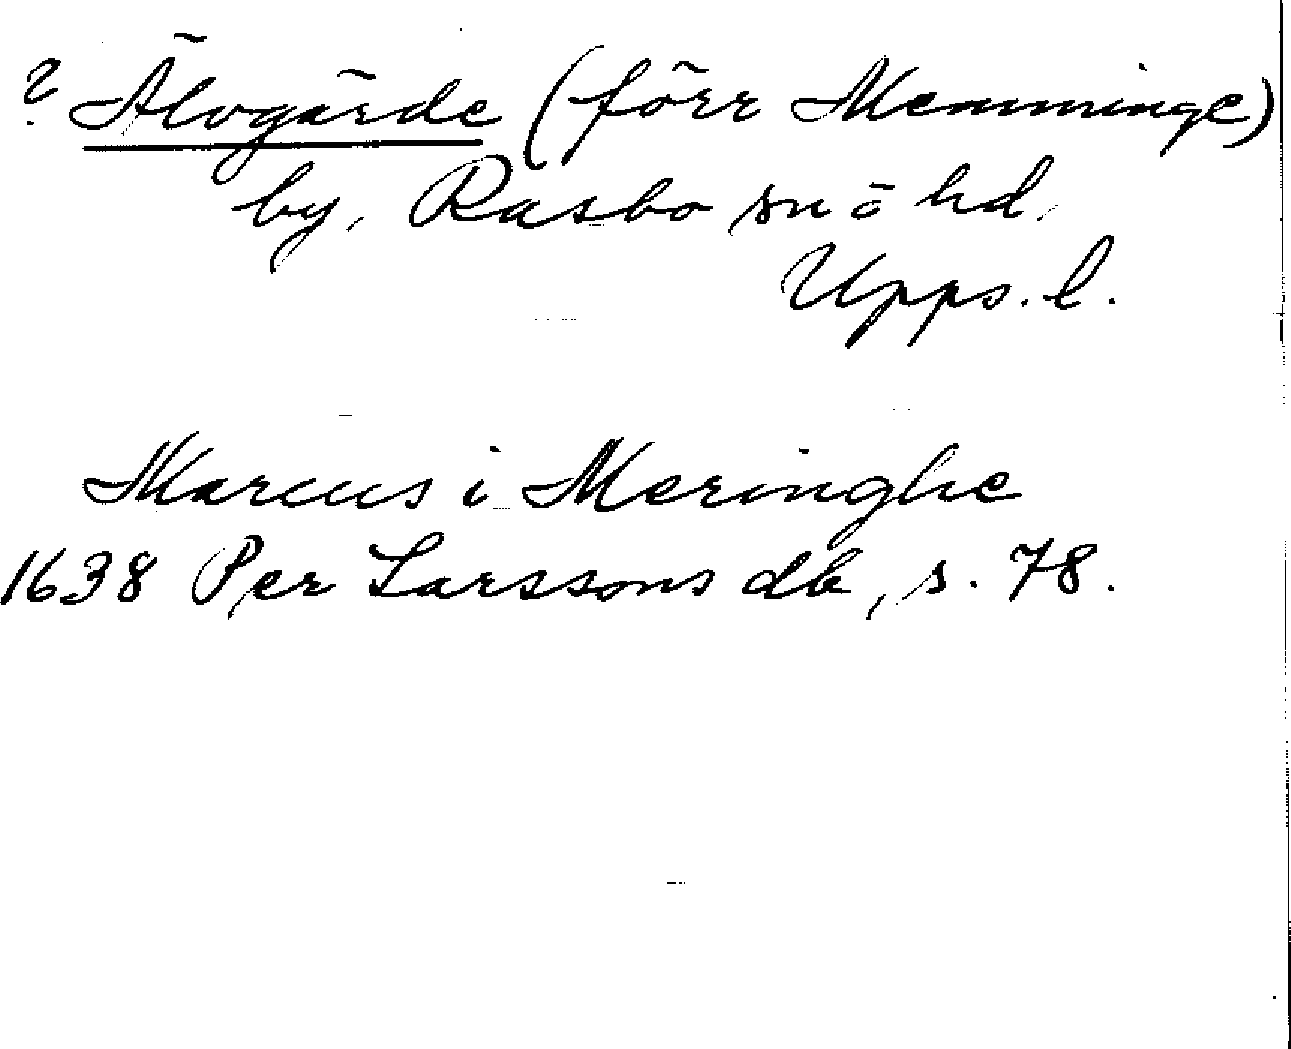 ? Älvgärde (förr Memminge)
by, Rasbo sn o hd.
Upps. l.
Marcus i Meringhe
1638 Per Larssons db, s. 78.